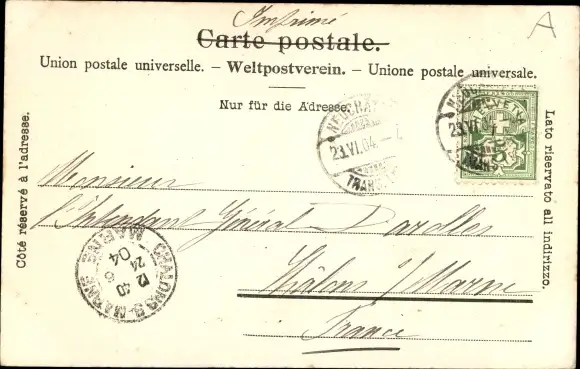 Imprimé
A
Carte postale.
Union postale universelle. – Weltpostverein. – Unione postale universale.
Nur für die Adresse.
Côté réservé à l'adresse.
Lato riservato all indirizzo.
NEUCHATEL
23.VI.04.
TRANSIT
23.VI.04.
HELVETIA
Monsieur
l'Intendant Général
Châlons s/ Marne
France
CHALONS-S-MARNE
12 40
24 6
04
MARNE